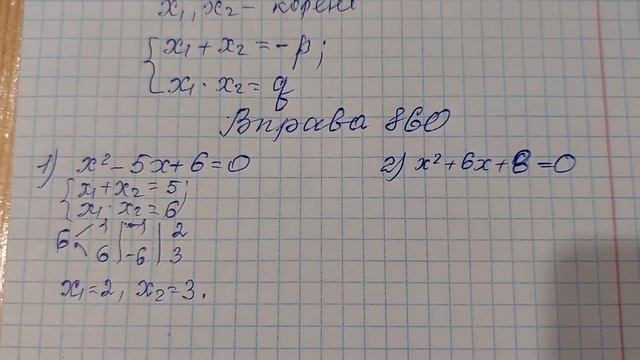 x₁, x₂ - корені
{ x₁ + x₂ = -p;
x₁ · x₂ = q
Вправа 860
1) x² - 5x + 6 = 0
{ x₁ + x₂ = 5;
x₁ · x₂ = 6
6 < 1 | -1 | 2
6 | -6 | 3
x₁ = 2, x₂ = 3.
2) x² + 6x + 8 = 0